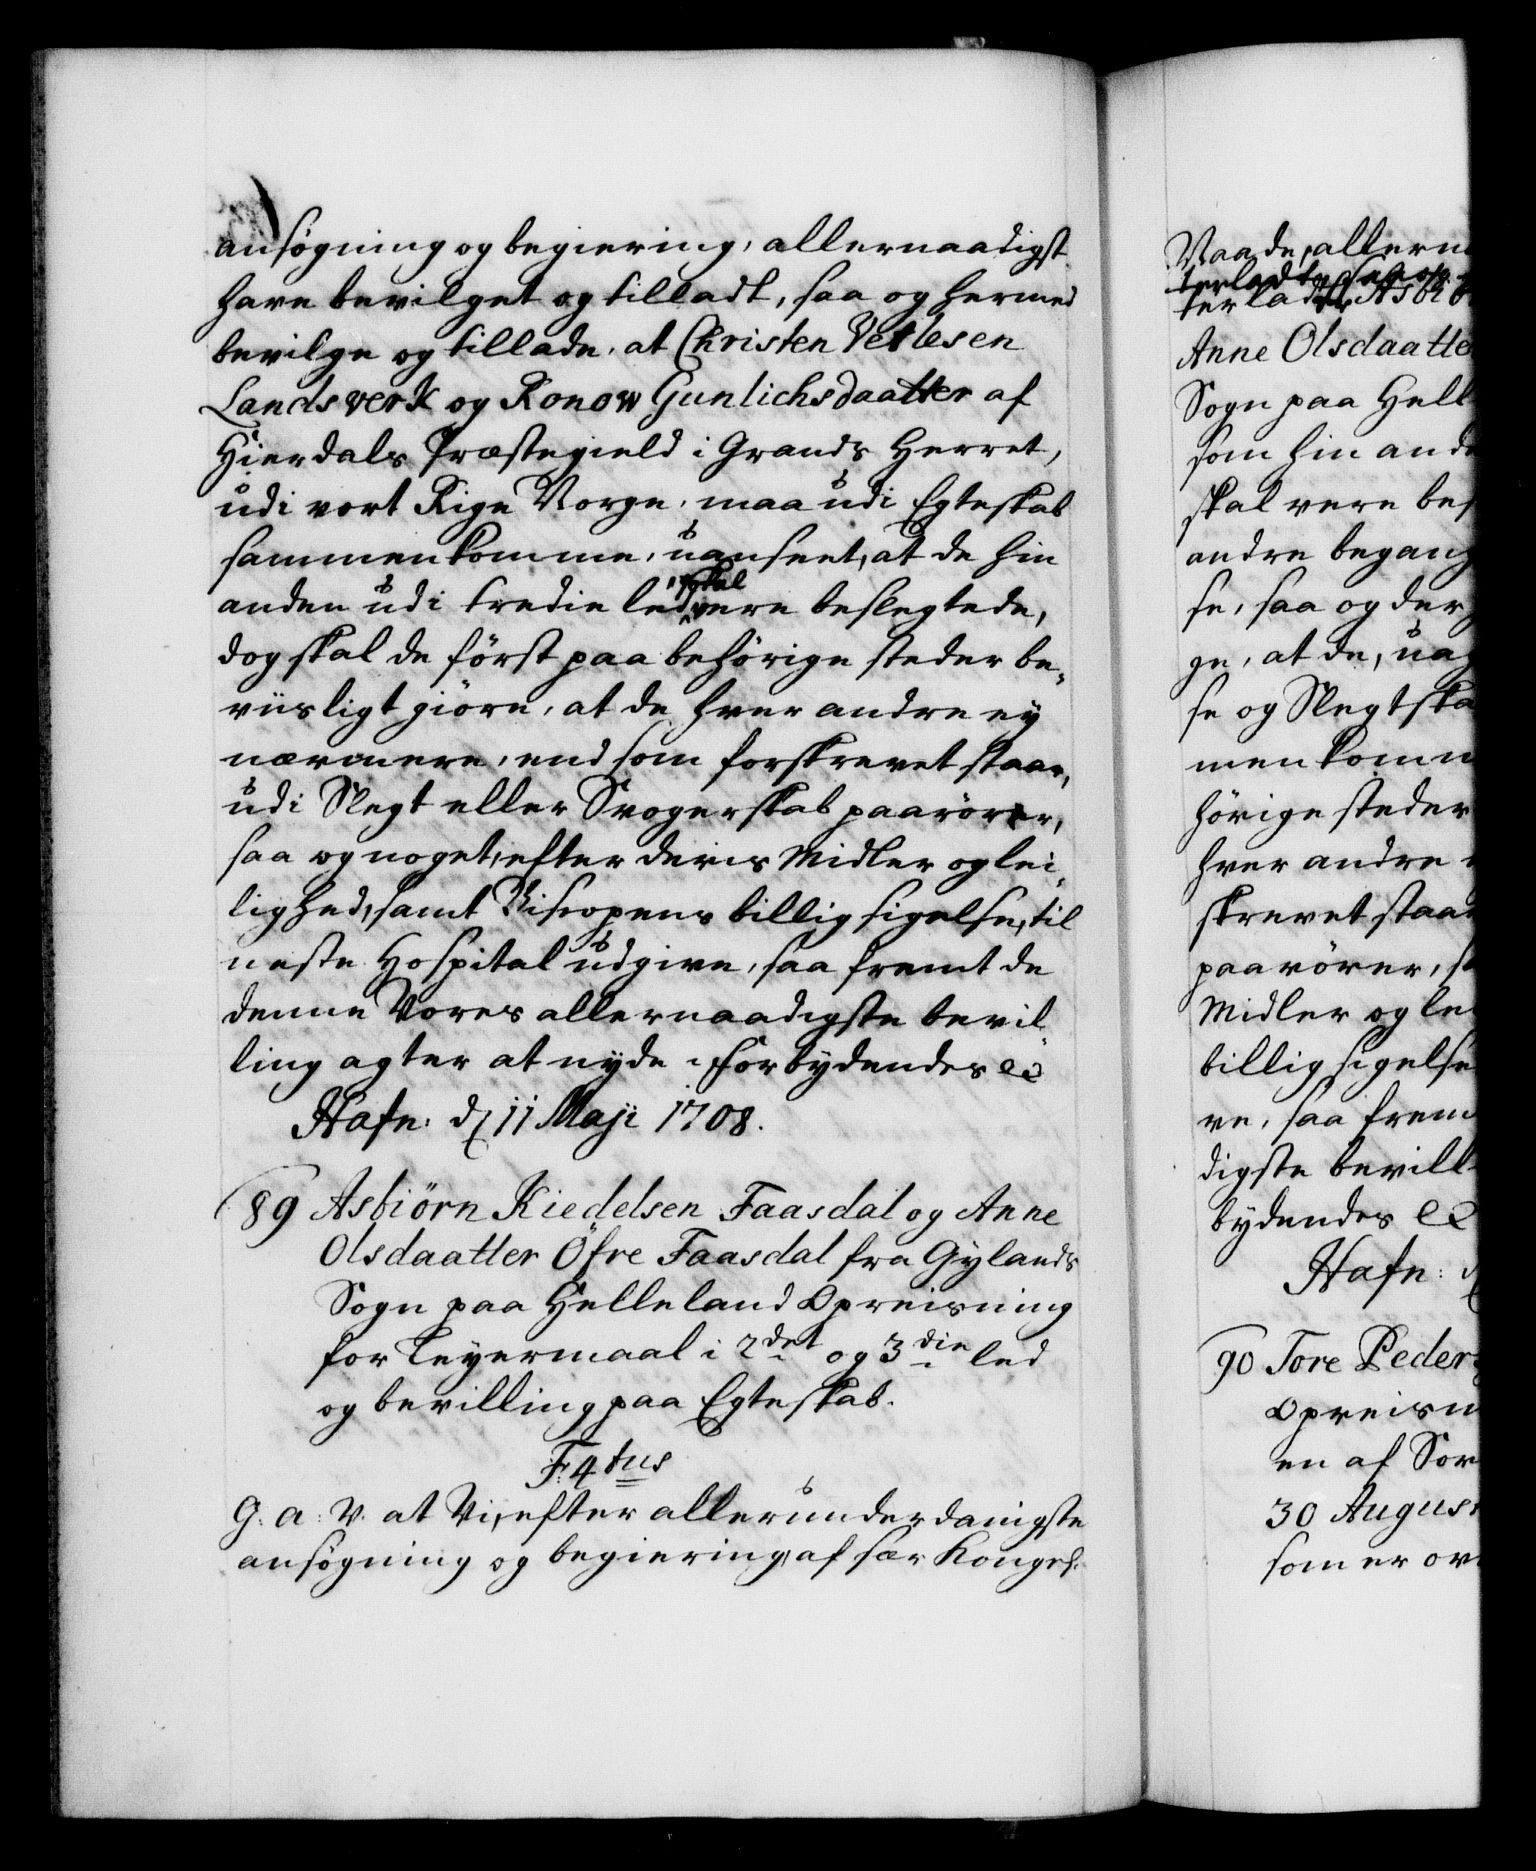 ansøgning og begiering, allernaadigst
have bevilget og tilladt, saa og hermed
bevilge og tillade, at Christen Vetlesen
Landsverk og Ronow Gunlichsdaatter af
Hierdals Præstegield i Grands Herret,
udi vort Rige Norge, maa udi Egteskab
sammenkomme, uanseet, at de hin
anden udi tredie led skal vere beslegtede,
dog skal de först paa behörige steder be-
viisligt giöre, at de hver andre ey
nærmere, end som forskrevet staar,
udi Slegt eller Svogerskab paarörer,
saa og noget, efter deris Midler og lei-
lighed, samt Biscopens billig sigelse, til
neste Hospital udgive, saa fremt de
denne Vores allernaadigste bevil-
ling agter at nyde. Forbydendes etc
Hafn: d 11 Maji 1708.
89 Asbiörn Kiedelsen Faasdal og Anne
Olsdaatter Öfre Faasdal fra Gylands
Sogn paa Helleland Opreisning
for Leyermaal i 2det og 3die led
og bevilling paa Egteskab.
F. 4tus
G. a: V. at Vi, efter allerunderdanigste
ansøgning og begiering, af sær Kongel.
Naade, allern
terladt, saa og
terlade Asbi
Anne Olsdaatte
Sogn paa Hell
som hin ande
skal vere bes
andre begang
se, saa og der
ge, at de, uag
se og Slegtska
men komm
hörige steder
hver andre
skrevet staar
paarörer, s
Midler og le
billig sigelse
ve, saa frem
digste bevill
bydendes etc
Hafn: d
90 Tore Peders
Opreisn
en af Sor
30 August
som er ov